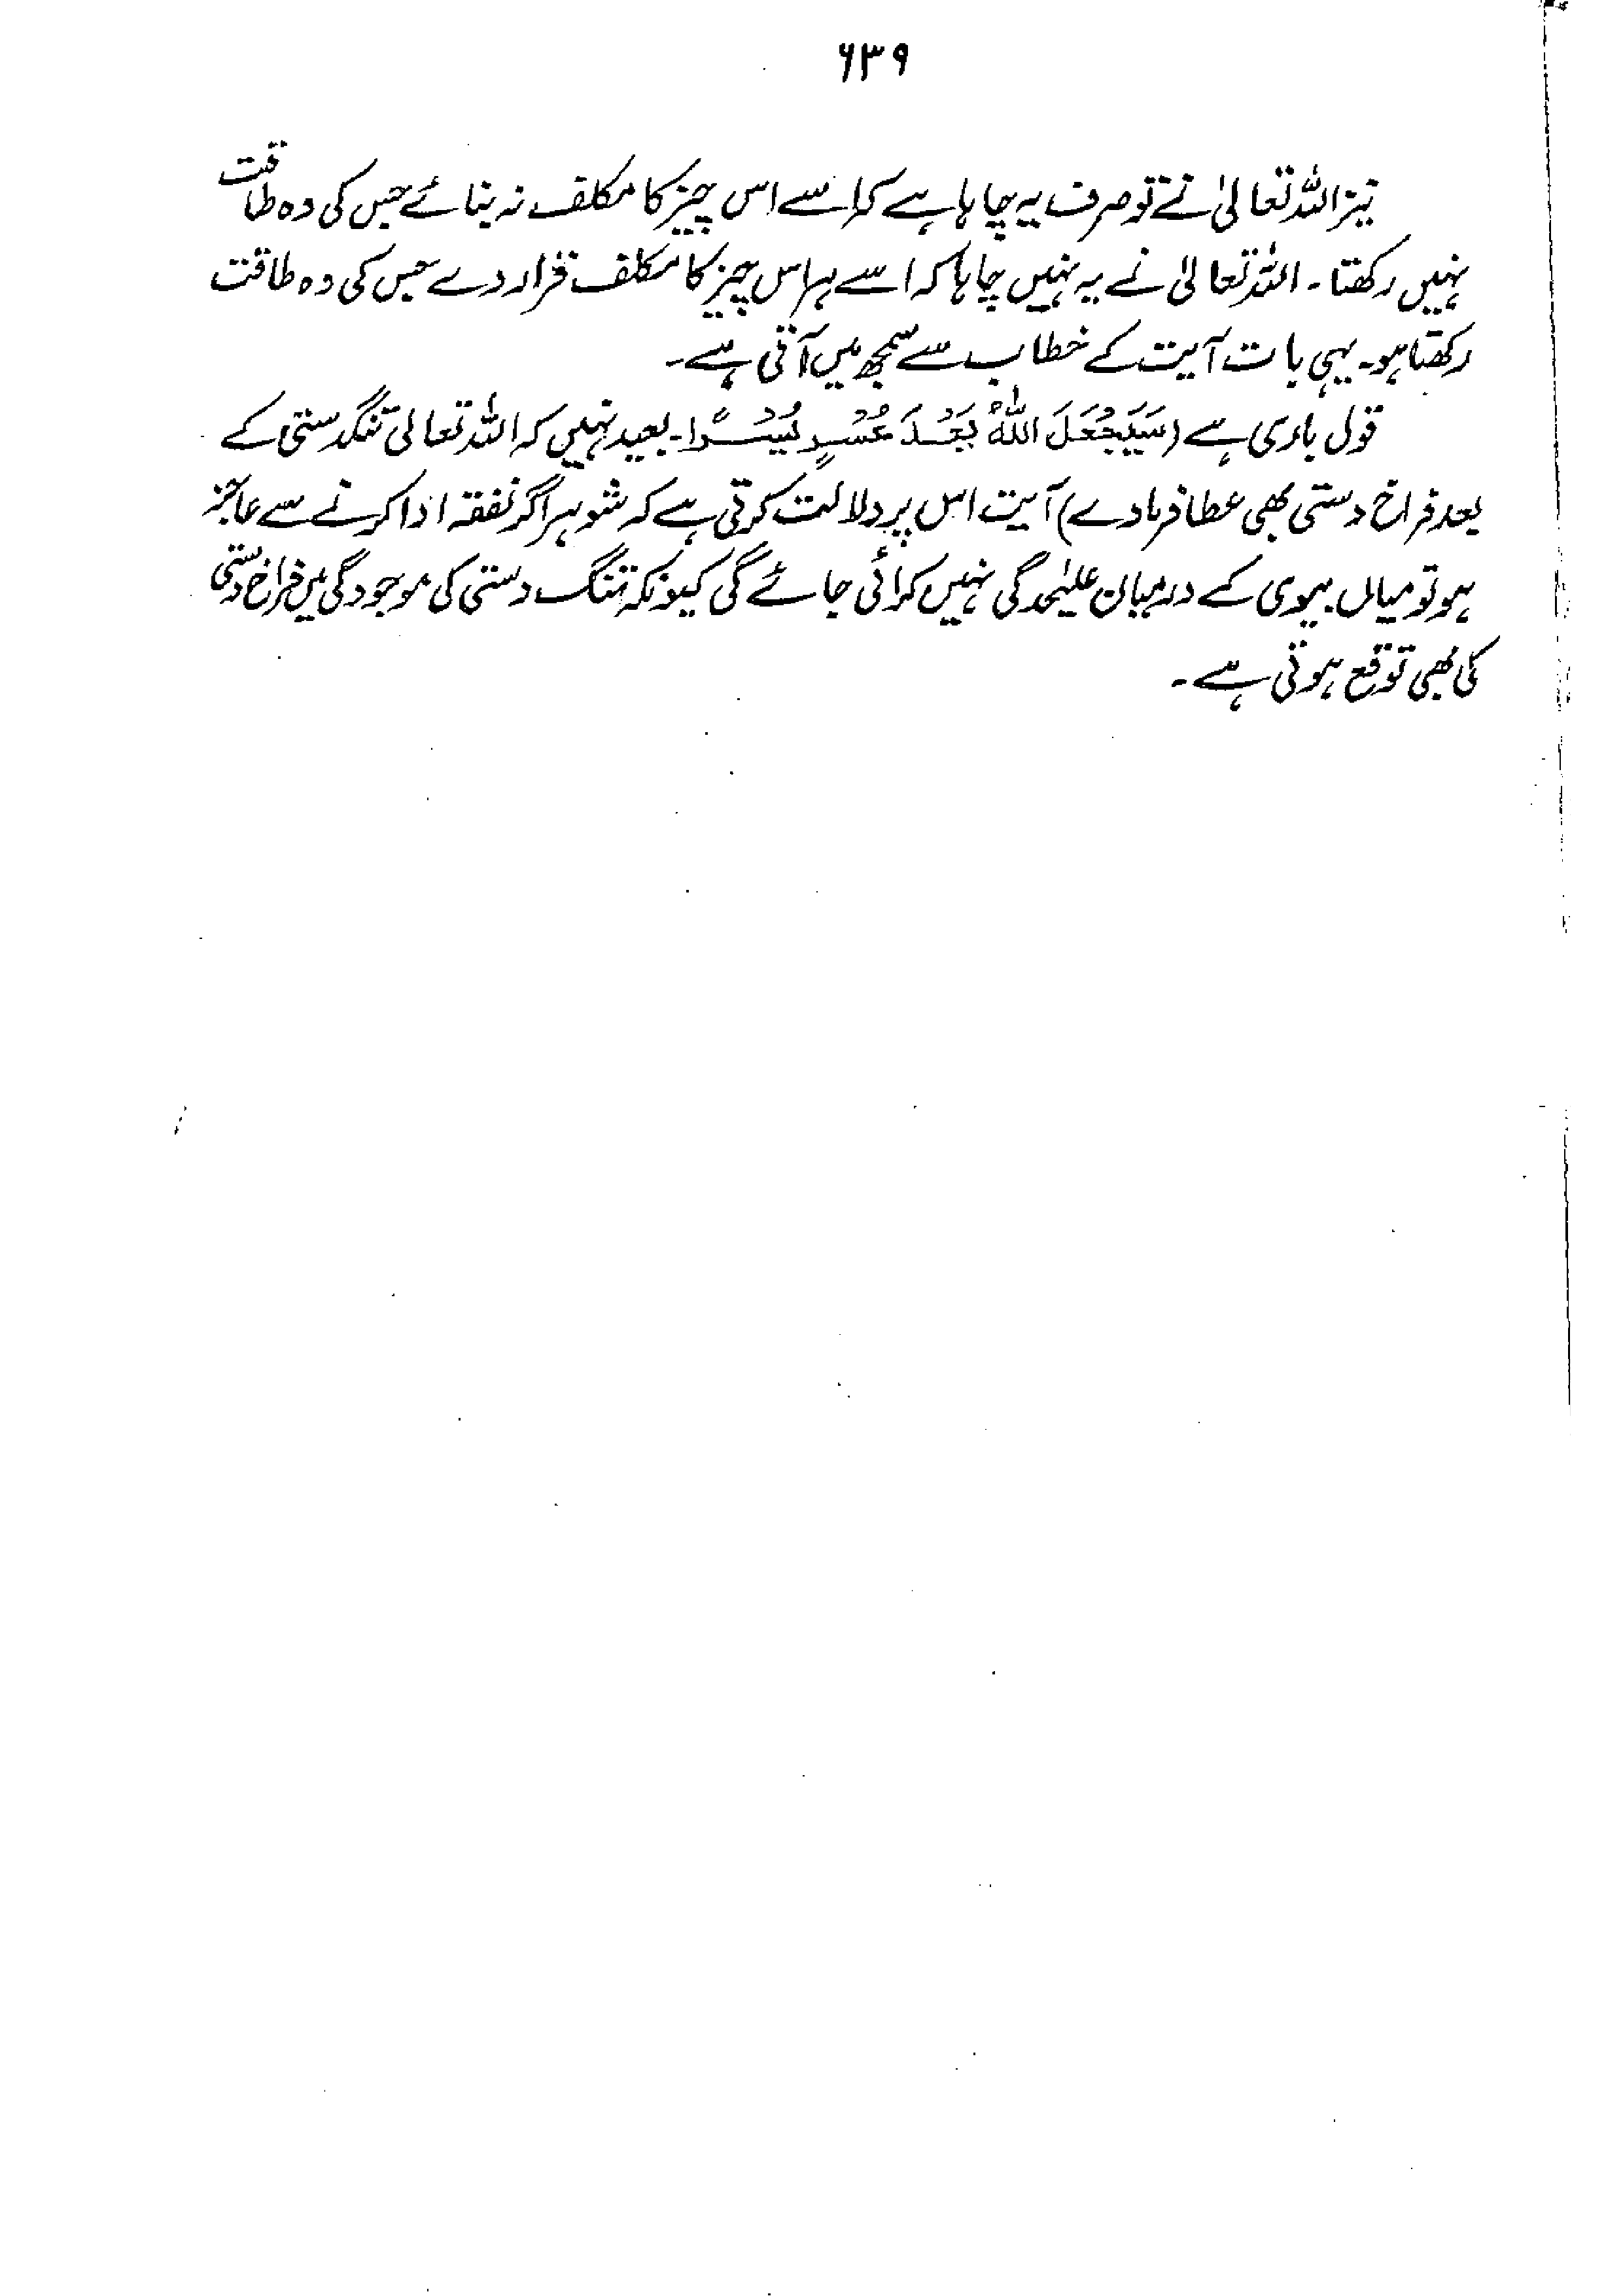 ۶۳۹
نیز اللہ تعالیٰ نے تو صرف یہ چاہا ہے کہ اسے اس چیز کا مکلف نہ بنائے جس کی وہ طاقت
نہیں رکھتا۔ اللہ تعالیٰ نے یہ نہیں چاہا کہ اسے ہر اس چیز کا مکلف قرار دے جس کی وہ طاقت
رکھتا ہو۔ یہی بات آیت کے خطاب سے سمجھ میں آتی ہے۔
قول باری ہے (سَيَجْعَلَ اللهُ بَعْدَ عُسْرٍ يُسْرًا۔ بعید نہیں کہ اللہ تعالیٰ تنگدستی کے
بعد فراخ دستی بھی عطا فرما دے) آیت اس پر دلالت کرتی ہے کہ شوہر اگر نفقہ ادا کرنے سے عاجز
ہو تو میاں بیوی کے درمیان علیٰحدگی نہیں کرائی جائے گی کیونکہ تنگ دستی کی موجودگی میں فراخ دستی
کی بھی توقع ہوتی ہے۔